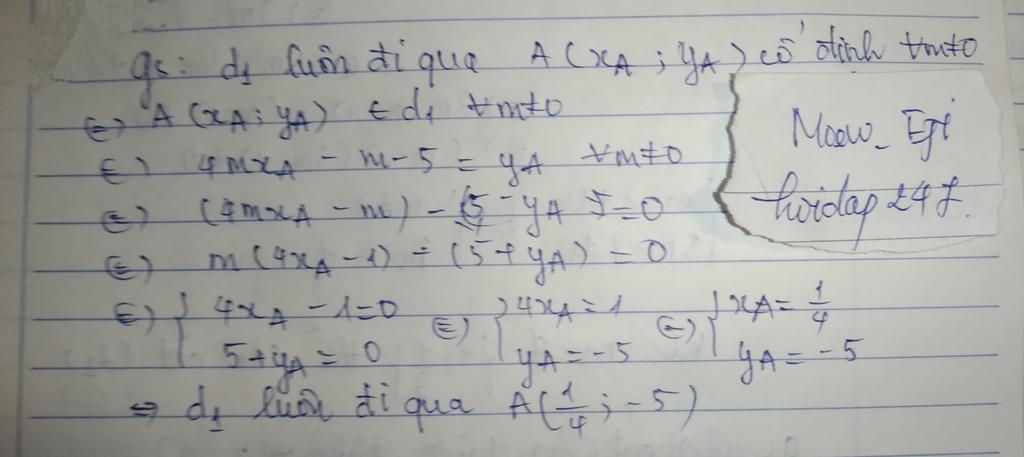 gs: d₁ luôn đi qua A(x_A; y_A) cố định ∀m≠0
⇔ A(x_A; y_A) ∈ d₁ ∀m≠0
⇔ 4mx_A - m - 5 = y_A ∀m≠0
⇔ (4mx_A - m) - 5 - y_A = 0
⇔ m(4x_A - 1) - (5 + y_A) = 0
⇔ { 4x_A - 1 = 0 ⇔ { 4x_A = 1 ⇔ { x_A = 1/4
5 + y_A = 0 y_A = -5 y_A = -5
⇒ d₁ luôn đi qua A(1/4; -5)
hoidap247.